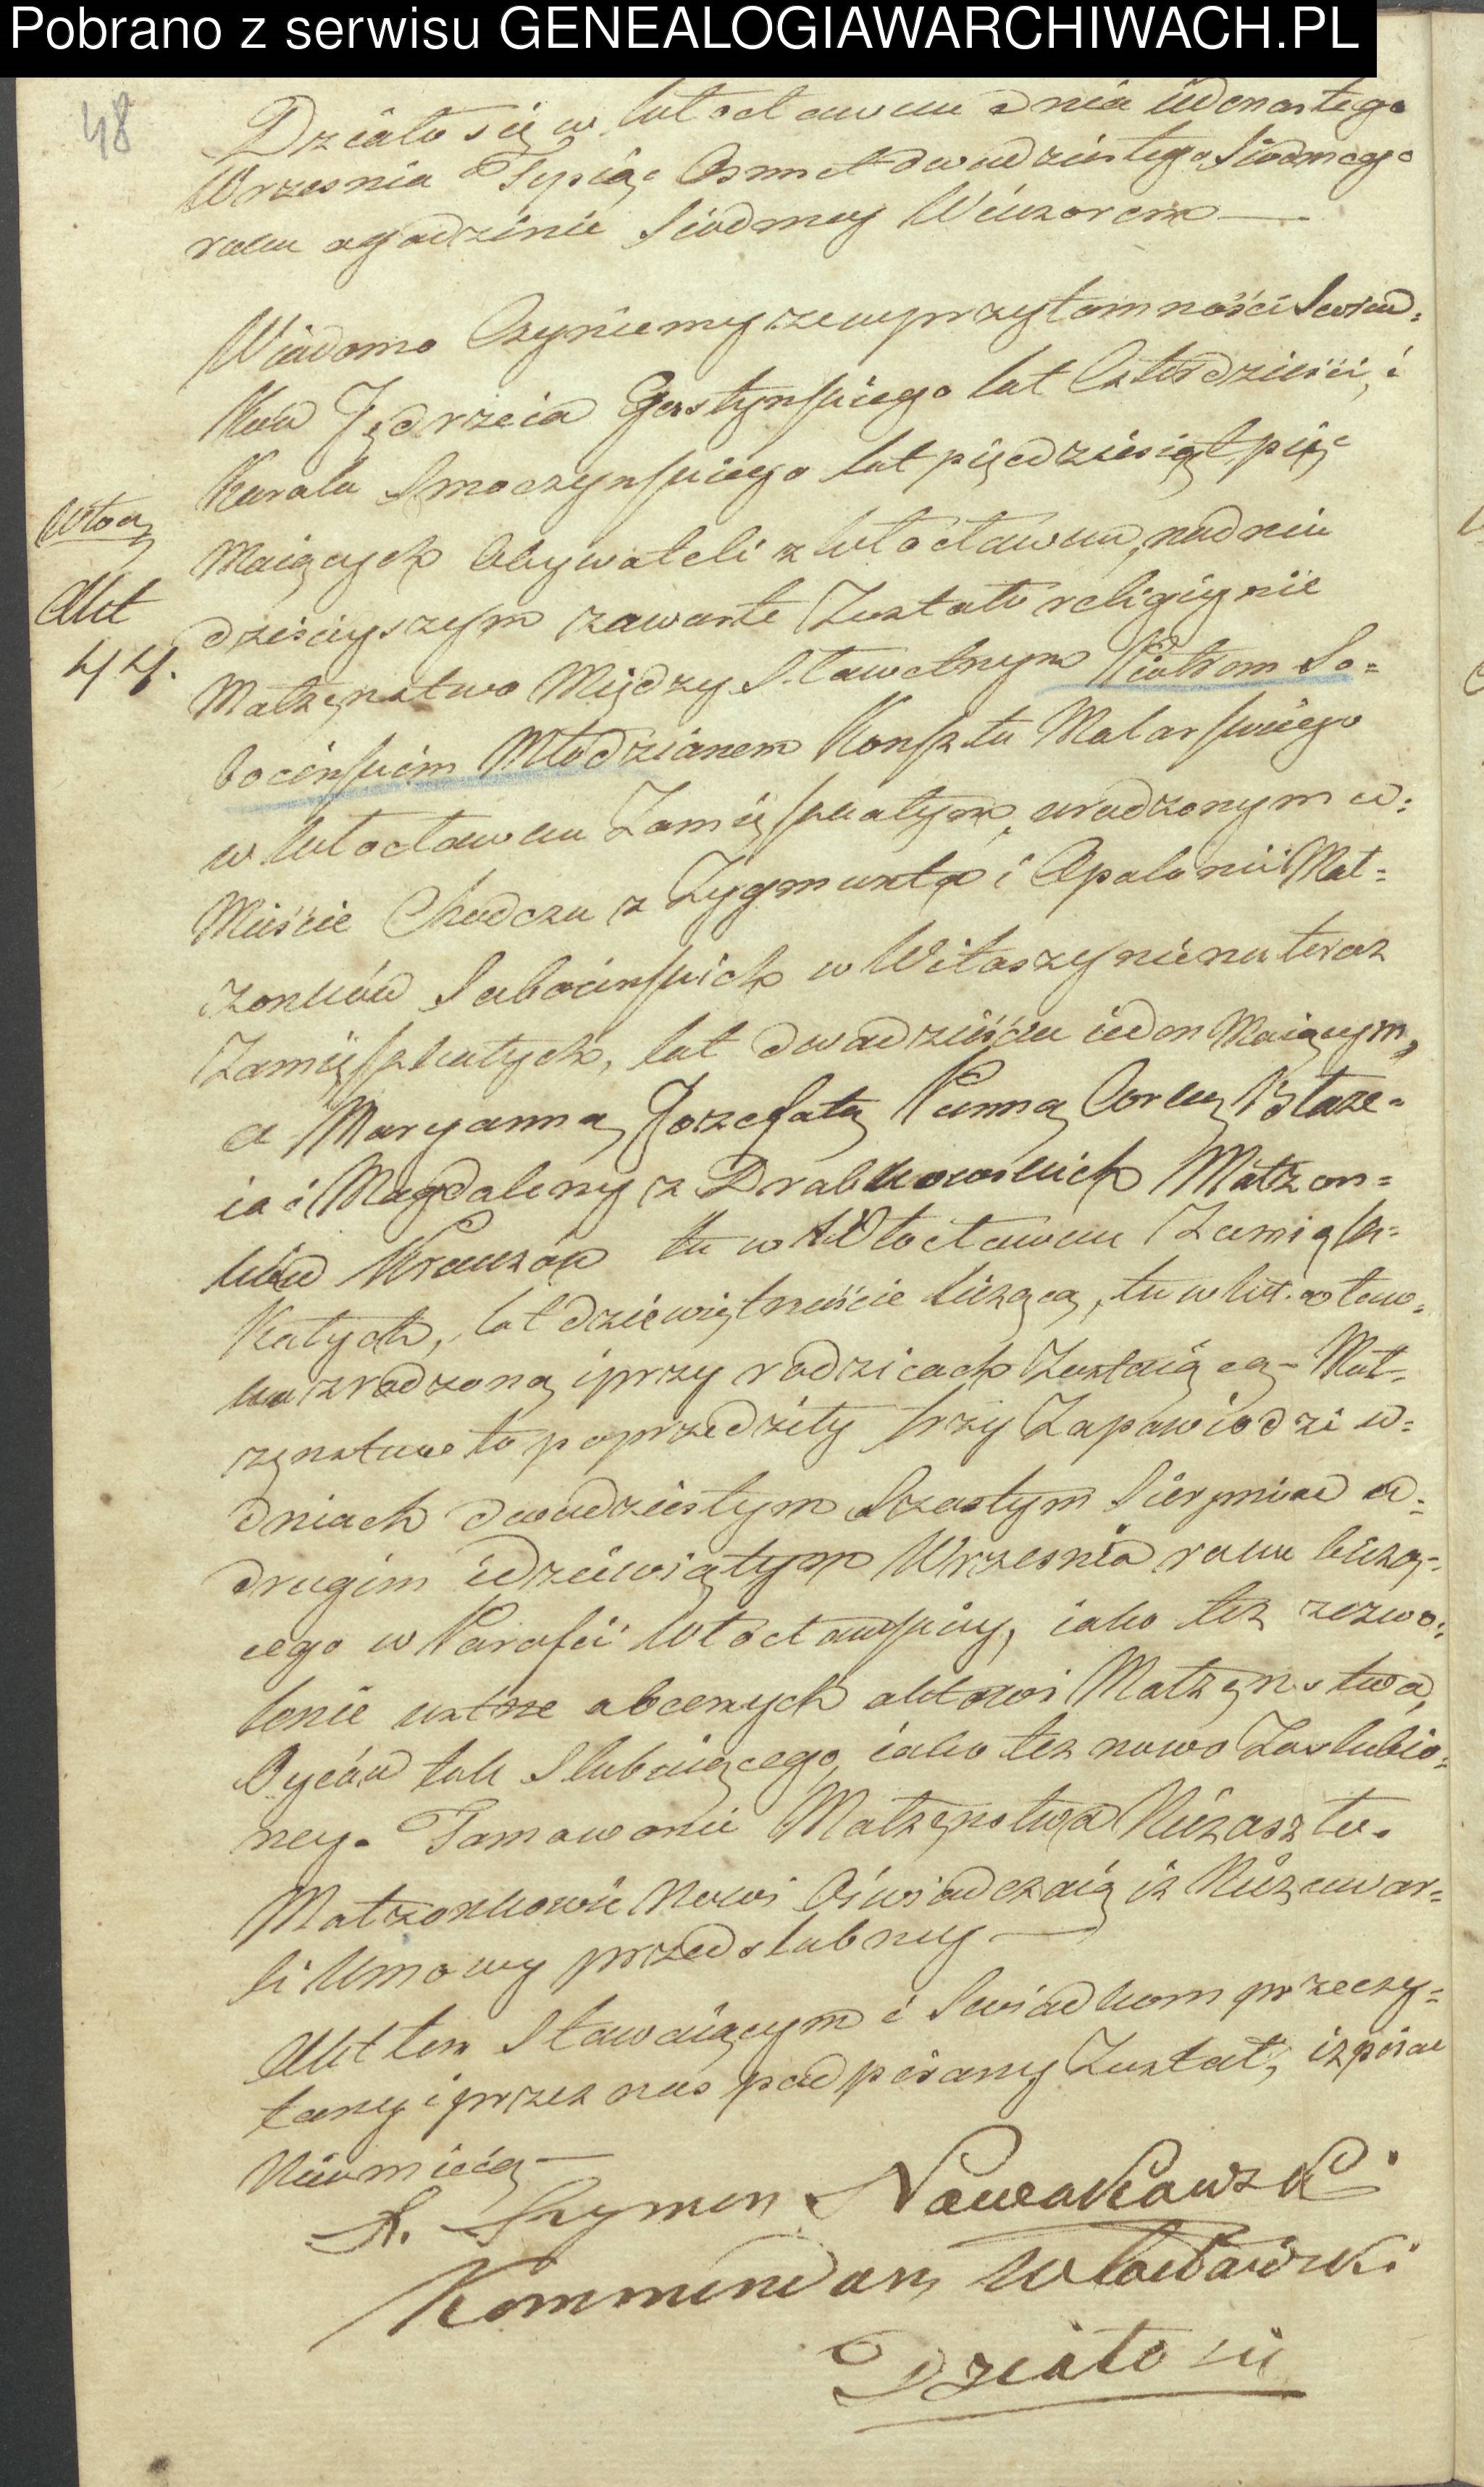 Pobrano z serwisu GENEALOGIAWARCHIWACH.PL
48
Działo się w Włocławku dnia iedenastego
Wrzesnia Tysiąc Osmset dwudziestego Siodmego
roku o godzinie Siodmey Wieczorem —
Wiadomo Czyniemy że w przytomności Swiad-
ków Jędrzeia Gostynskiego lat Czterdzieści, i
Karola Smoczynskiego lat pięćdziesiąt pięć
Włoc.
maiących Obywateli z Włocławka, na dniu
Akt
dzisieyszym zawarte Zostało religiynie
44.
Małżenstwo Między Sławetnym Piotrem So-
bocinskim Młodzianem Konsztu Malarskiego
w Włocławku Zamięszkałym, urodzonym w-
Mieście Chodczu z Zygmunta i Apolonii Mał-
żonków Sobocinskich w Witoszynie na teraz
Zamięszkałych, lat dwadzieścia ieden Maiącym,
a Maryanną Jozefatą Panną Corką Błaże-
ia i Magdaleny z Drabkowskich Małżon-
ków Krauzów tu w Włocławku Zamięsz-
kałych, lat dziewiętnaście liczącą, tu w Włocław-
ku zrodzoną i przy rodzicach Zostaiącą – Mał-
żenstwo to poprzedziły trzy Zapowiedzi w-
dniach dwudziestym Szostym Sierpnia
drugim i dziewiątym Wrzesnia roku bieżą-
cego w Parafii Włocławskiey, iako też zezwo-
lenie ustne obecnych aktowi Małżenstwa,
Oyców tak Slubuiącego, iako też nowo Zaslubio-
ney. Tamowanie Małżenstwa Nie zaszło.
Małżonkowie Nowi Oświadczaią iż Nie zawar-
li Umowy przedslubney —
Akt ten Stawaiącym i Swiadkom przeczy-
tany i przez nas podpisany Został, iż pisac
Nieumieią —
X. Szymon Nowakowski
Kommendarz Włocławski
Działo się